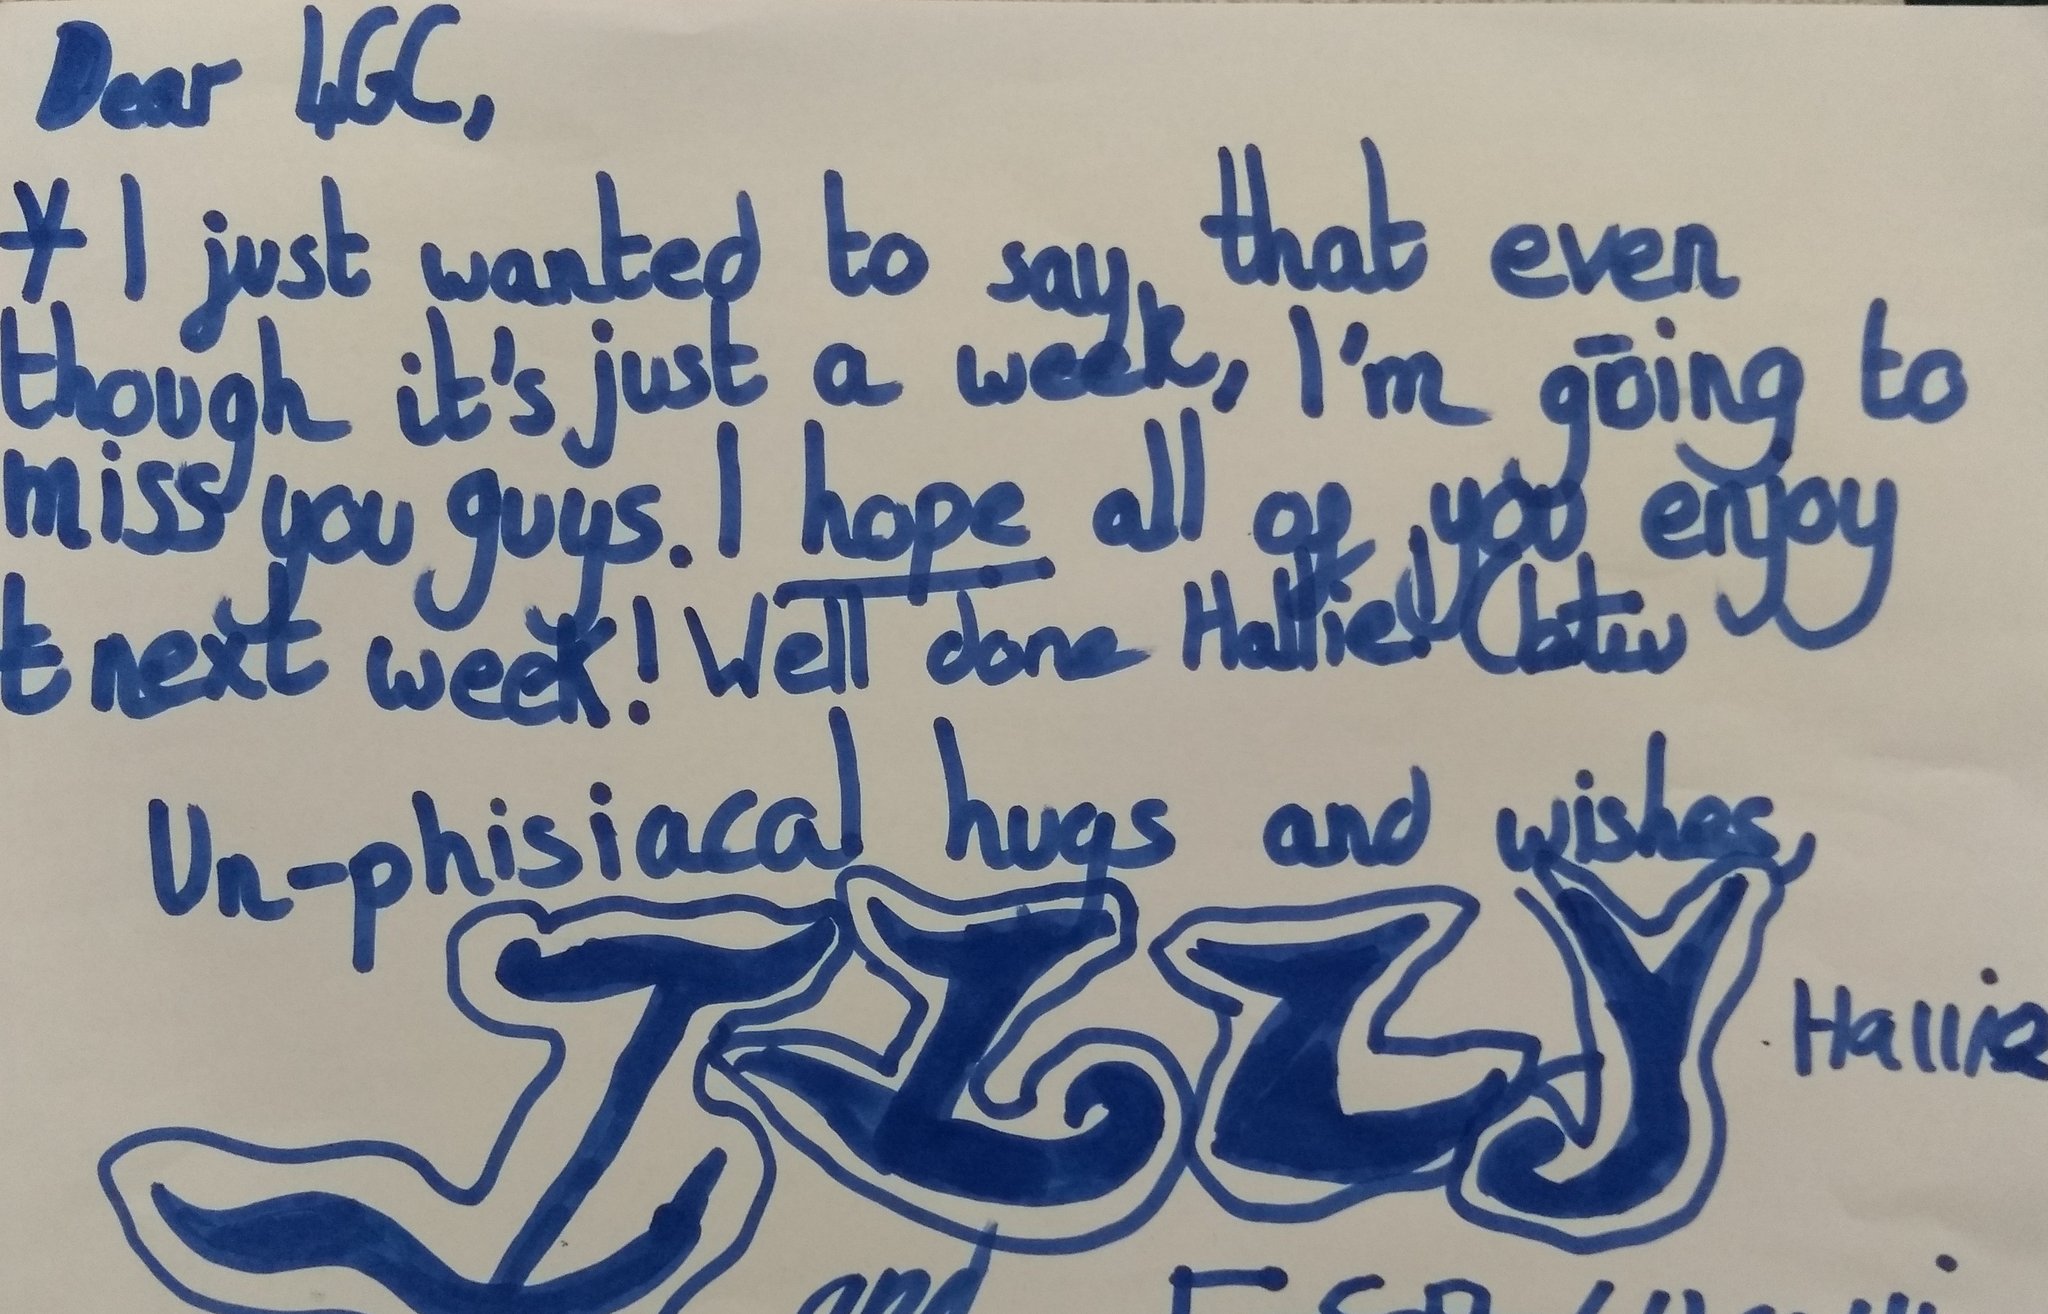 Dear 4GC,
I just wanted to say, that even
though it's just a week, I'm going to
miss you guys. I hope all of you enjoy
t next week! Well done Hallie! (btw
Un-phisiacal hugs and wishes,
Hallie
and